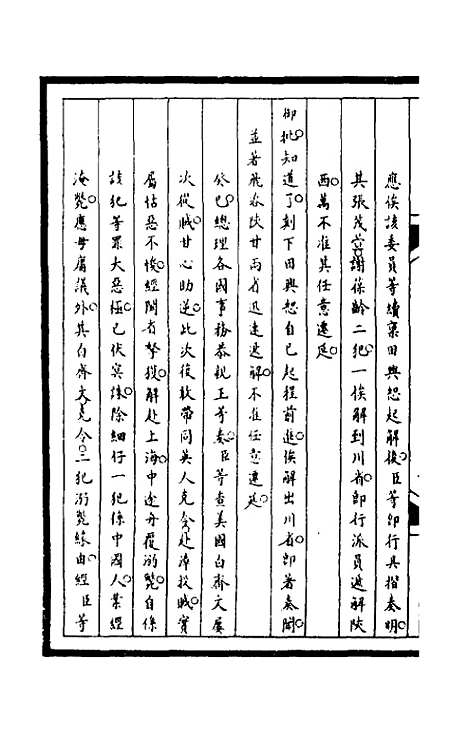 應俟該委員等續稟田興恕起解後。臣等即行具摺奏明。
其張茂萱謝葆齡二犯。一俟解到川省。即行派員遞解陝
西。萬不准其任意遷延。
御批。知道了。刻下田興恕自已起程前進。俟解出川省。即著奏聞。
並著飛咨陝甘兩省迅速遞解。不准任意遷延。
癸巳。總理各國事務恭親王等奏。臣等查美國白齊文屢
次從賊。甘心助逆。此次復敢帶同英人克令赴漳投賊。實
屬怙惡不悛。經閩省拏獲。解赴上海。中途舟覆溺斃。自係
該犯等罪大惡極。已伏冥誅。除細仔一犯。係中國人。業經
淹斃。應毋庸議外。其白齊文克令二犯溺斃緣由。經臣等